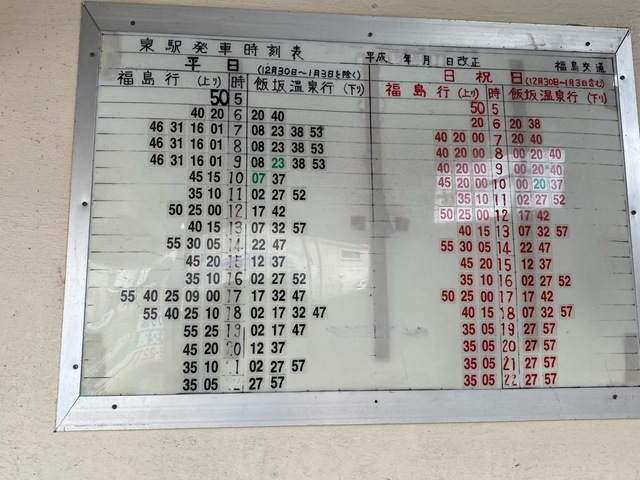 泉駅発車時刻表 平成 年 月 日改正 福島交通
平日 (12月30日～1月3日を除く) 日祝日 (12月30日～1月3日含む)
福島行(上り) 時 飯坂温泉行(下り) 福島行(上り) 時 飯坂温泉行(下り)
50 5 50 5
40 20 6 20 40 20 6 20 38
46 31 16 01 7 08 23 38 53 40 20 00 7 20 40
46 31 16 01 8 08 23 38 53 40 20 00 8 00 20 40
46 31 16 01 9 08 23 38 53 40 20 00 9 00 20 40
45 15 10 07 37 45 20 00 10 00 20 37
35 10 11 02 27 52 35 10 11 02 27 52
50 25 00 12 17 42 50 25 00 12 17 42
40 15 13 07 32 57 40 15 13 07 32 57
55 30 05 14 22 47 55 30 05 14 22 47
45 20 15 12 37 45 20 15 12 37
35 10 16 02 27 52 35 10 16 02 27 52
55 40 25 09 00 17 17 32 47 50 25 00 17 17 42
55 40 25 10 18 02 17 32 47 40 15 18 07 32 57
55 25 19 02 17 47 35 05 19 27 57
45 20 20 12 37 35 05 20 27 57
35 10 1 02 27 57 35 05 21 27 57
35 05 27 57 35 05 22 27 57